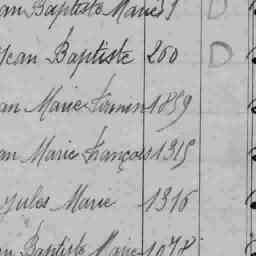 an Baptiste Marie 51 D
Jean Baptiste 260 D
an Marie Firmin 1859
an Marie François 1315
Jules Marie 1316
Baptiste Marie 1078